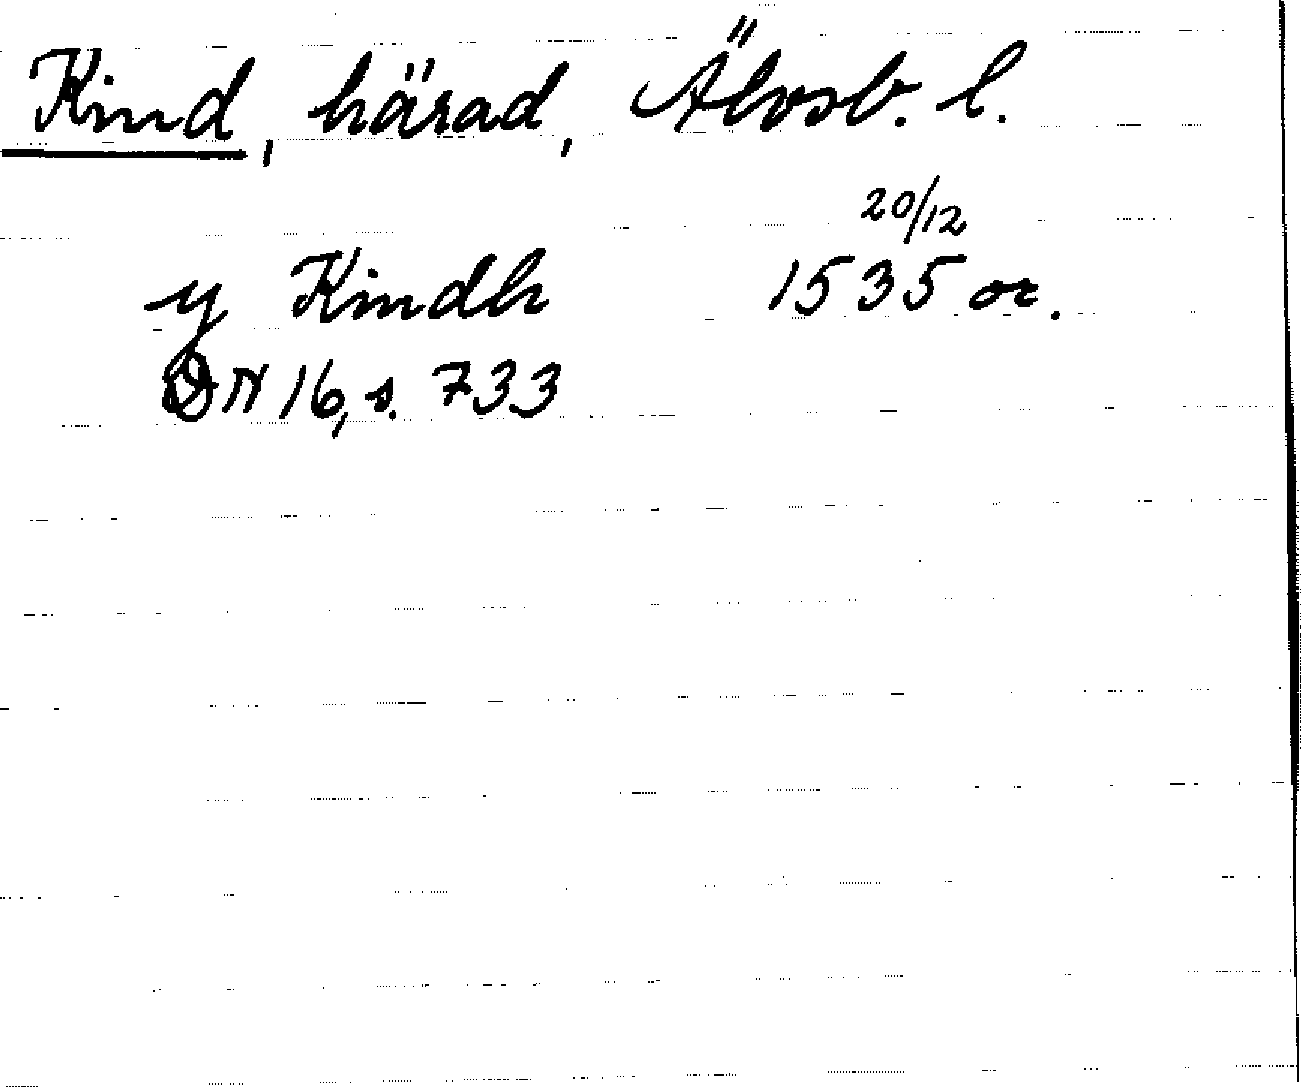 Kind, härad, Älvsb. l.
20/12
y Kindh 1535 or.
DN 16, s. 733